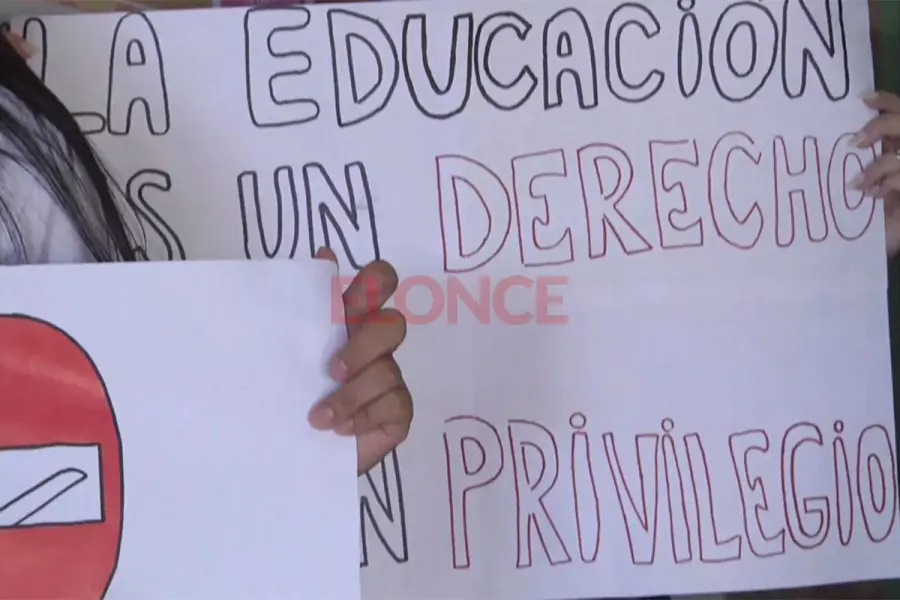 LA EDUCACIÓN
ES UN DERECHO
ELONCE
UN PRIVILEGIO